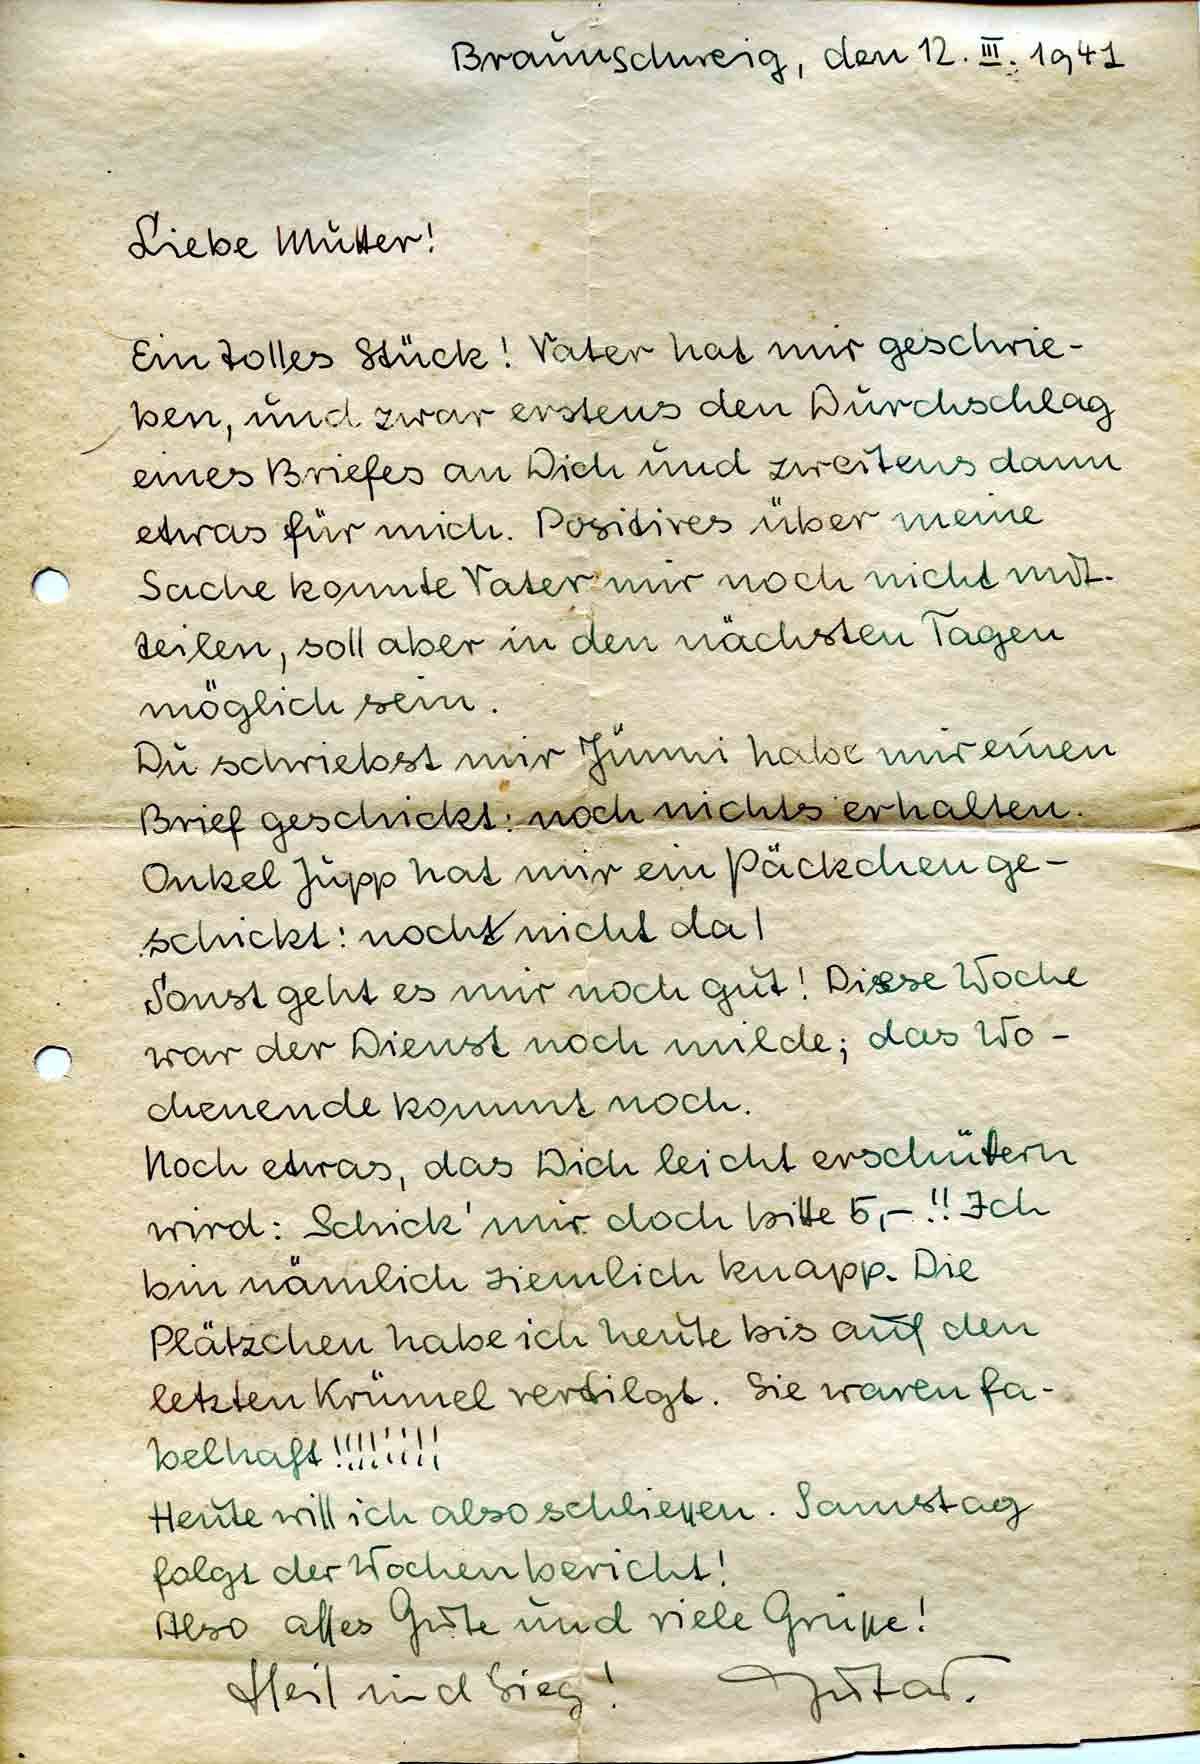 Braunschweig, den 12. III. 1941
Liebe Mutter!
Ein tolles Stück! Vater hat mir geschrie-
ben, und zwar erstens den Durchschlag
eines Briefes an Dich und zweitens dann
etwas für mich. Positives über meine
Sache konnte Vater mir noch nicht mit-
teilen, soll aber in den nächsten Tagen
möglich sein.
Du schriebst mir Jümmi habe mir einen
Brief geschickt: noch nichts erhalten.
Onkel Jupp hat mir ein Päckchen ge-
schickt: noch nicht da!
Sonst geht es mir noch gut! Diese Woche
war der Dienst noch milde; das Wo-
chenende kommt noch.
Noch etwas, das Dich leicht erschüttern
wird: Schick' mir doch bitte 5,- !! Ich
bin nämlich ziemlich knapp. Die
Plätzchen habe ich heute bis auf den
letzten Krümel vertilgt. Sie waren fa-
belhaft!!!!!!!!
Heute will ich also schließen. Samstag
folgt der Wochenbericht!
Also alles Gute und viele Grüße!
Heil und Sieg!